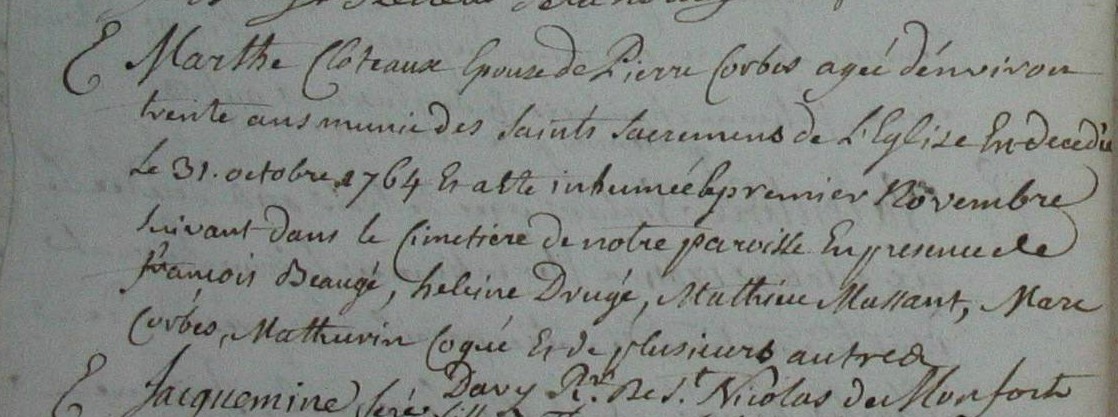 E Marthe Cloteaux Epouse de Pierre Corbes agée d'environ
trente ans munie des saints sacremens de L'Eglise En decedée
Le 31. octobre 1764 Et a ete inhumée le premier Novembre
suivant dans le Cimetiere de notre paroisse En presence de
francois Beaugé, heleine Drugé, Mathieu Massant, Marc
Corbes, Mathurin Coqué Et de plusieurs autres
Davy R.r De S.t Nicolas de Monfort
E Jacquemine